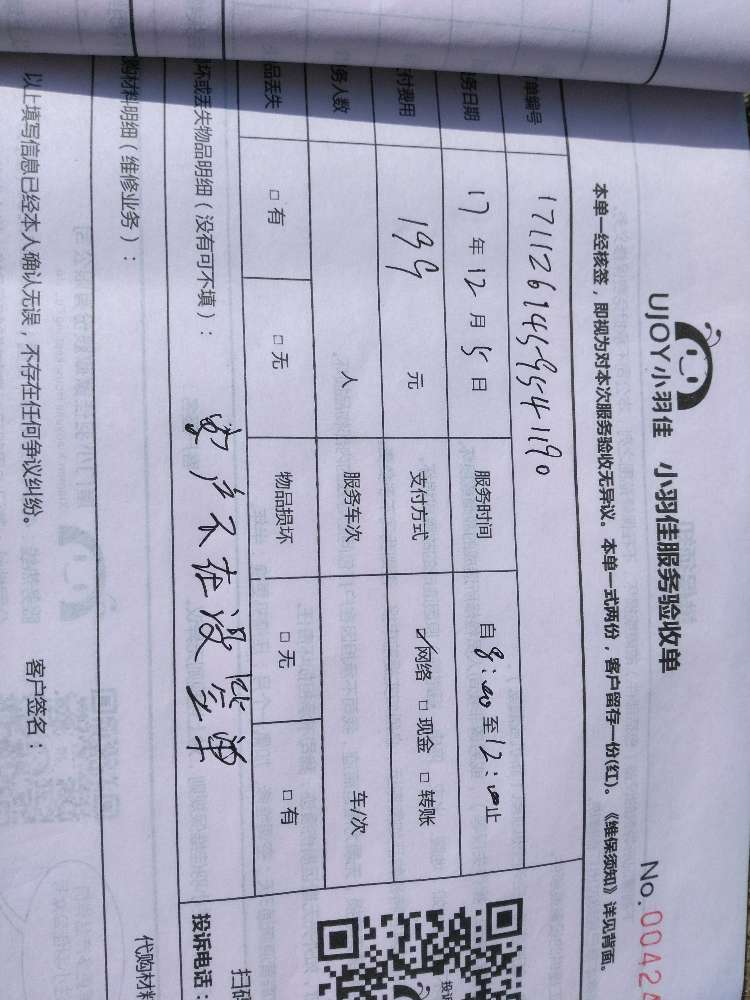 UJOY小羽佳 小羽佳服务验收单
No.00424
本单一经核签，即视为对本次服务验收无异议。本单一式两份，客户留存一份(红)。《维保须知》详见背面。
单编号
务日期 17年12月5日 服务时间 自8:00至12:00止
付费用 199元 支付方式 ☑网络 □现金 □转账
务人数 人 服务车次 车/次
品丢失 □有 □无 物品损坏 □无 □有
坏或丢失物品明细（没有可不填）：
客户不在没签单
购材料明细（维修业务）：
代购材料
以上填写信息已经本人确认无误，不存在任何争议纠纷。 客户签名：
投诉电话：
扫码
投诉